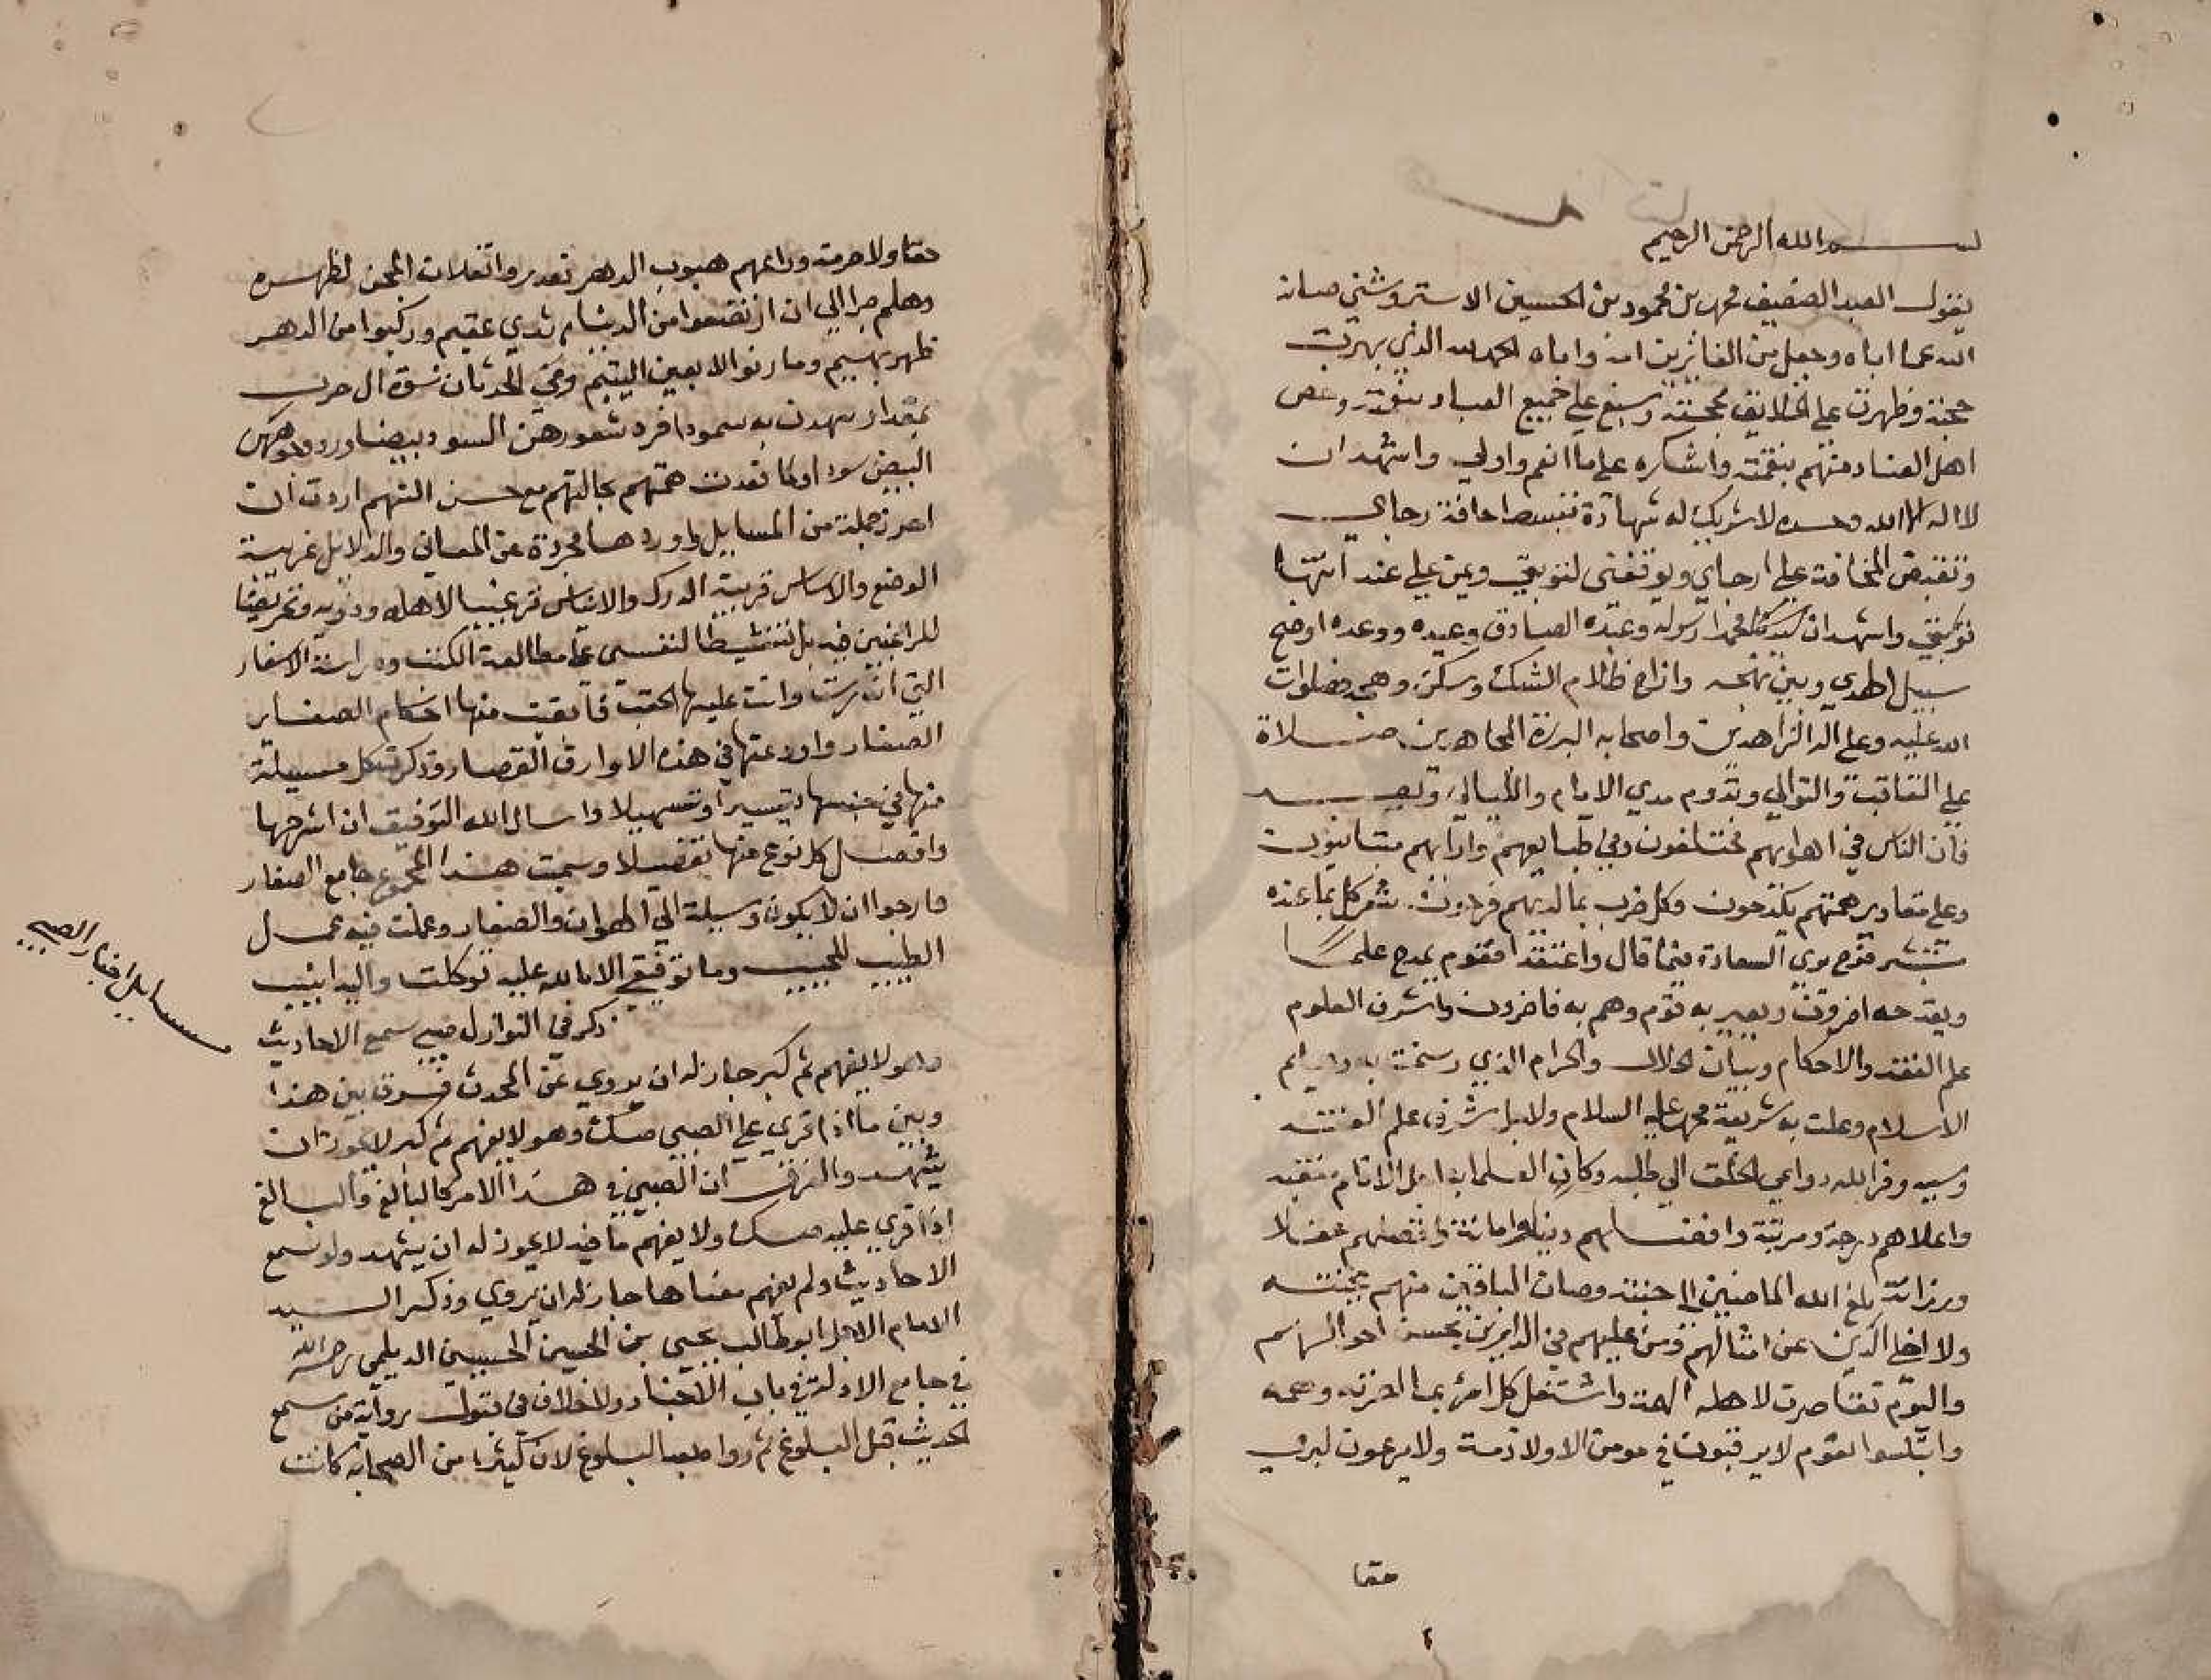 بسم الله الرحمن الرحيم
يقول العبد الضعيف محمد بن محمود بن الحسين الاستروشني صانه
الله عما اباه وجعل من الفائزين امه واباه الحمد لله الذي بهرت
حجته وظهرت على الخلايق محجته وسبغ على جميع العباد نعمته وعص
اهل العناد منهم بنقمته واشكره على ما انعم واولي واشهد ان
لا اله الا الله وحده لا شريك له شهادة تبسط احافة رجاي
وتقبض المخافة علي ارجاي وتوقفني لتوبتي وتمن علي عند انتها
نوبتي واشهد ان سيدنا محمدا رسوله وعبده الصادق وعيده ووعده اوضح
سبيل الهدي وبين نهجه وازاح ظلام الشك وسكن وهجه صلوات
الله عليه وعلى اله الزاهدين واصحابه البررة المجاهدين صلاة
على التعاقب والتوالي وتدوم مدي الايام والليالي وبعد
فان الناس في اهوايهم مختلفون وفي طبايعهم وارايهم متباينون
وعلى مقادير همتهم يكدحون وكل حزب بما لديهم فرحون كل بما عنده
قوم يري السعادة فيما قال واعتقدا فقوم يمدح علما
ويقدحه اخرون ويعير به قوم وهم به فاخرون واشرف العلوم
علم الفقه والاحكام وبيان الحلال والحرام الذي رسخت به دعايم
الاسلام وعلت به شريعة محمد عليه السلام ولاجل شرف علم الفقه
وسببه وفر الله دواعي الخلق الي طلبه وكان العلما به اجل الانام
واعلاهم درجة ومرتبة وافضلهم دينا وامانة عقلا
ورزانة بلغ الله الماضين الي جنته وصان الباقين منهم بجنته
ولا اخلى الدين عن امثالهم ومن عليهم في الدارين بحسن احوالهم
واليوم تقاصرت لاهله الهمة واشتغل كل امرئ بما احزنه وهمه
وابتلوا بقوم لا يرقبون في مومن الا ولا ذمة ولا يرعون لبري
حقا
حقا ولا حرمة هبوب الدهر المحن لظهره
وهلم جرا الي ان من بثدي عقيم وركبوا من الدهر
ظهر بهيم وما رنوا الا بعين اليتيم ورمي الحدثان نسوة ال حرب
بمقدار سمدن به سمودا فرد شعورهن السود بيضا ورد وجوههن
البيض سودا ولما قعدت همتهم بحالتهم مع حسن التهم اردت ان
احرز جملة من المسايل واوردها مجردة عن المعاني والدلايل غريبة
الوضع والاساس قريبة الدرك والايناس ترغيبا لاهله وذويه وتحريضا
للراغبين فيه بل تنشيطا لنفسي على مطالعة الكتب ودراسة الاسفار
التي اندرست واتت عليها الحقب فانتقيت منها احكام الصغاير
الصغار واودعتها في هذه الاوراق القصار وذكرت كل مسيلة
منها في جنسها تيسيرا وتسهيلا واسال الله التوفيق ان اشرحها
وافصل كل نوع منها تفصيلا وسميت هذا المجموع جامع الصغار
وارجوا ان يكون وسيلة الي والصغار وعملت فيه عمل
الطبيب للحبيب وما توفيقي الا بالله عليه توكلت واليه انيب
ذكر في النوازل صبي سمع الاحاديث
وهو لا يفهم ثم كبر جاز له ان يروي عن المحدث فرق بين هذا
وبين ما اذا قري على الصبي صك وهو لا يفهم ثم كبر لا يجوز ان
يشهد والفرق ان الصبي في هذا الامر كالبالغ والبالغ
اذا قري عليه صك ولا يفهم ما فيه لا يجوز له ان يشهد ولو سمع
الاحاديث ولم يفهم معناها جاز له ان يروي وذكر السيد
الامام الاجل ابو طالب يحيى بن الحسين الحسيني الديلمي رحمه الله
في جامع الادلة في باب الاخبار والخلاف في قبول رواية من سمع
الحديث قبل البلوغ ثم روا بعد البلوغ لان كثيرا من الصحابة كانت
مسايل اخبار الصبي